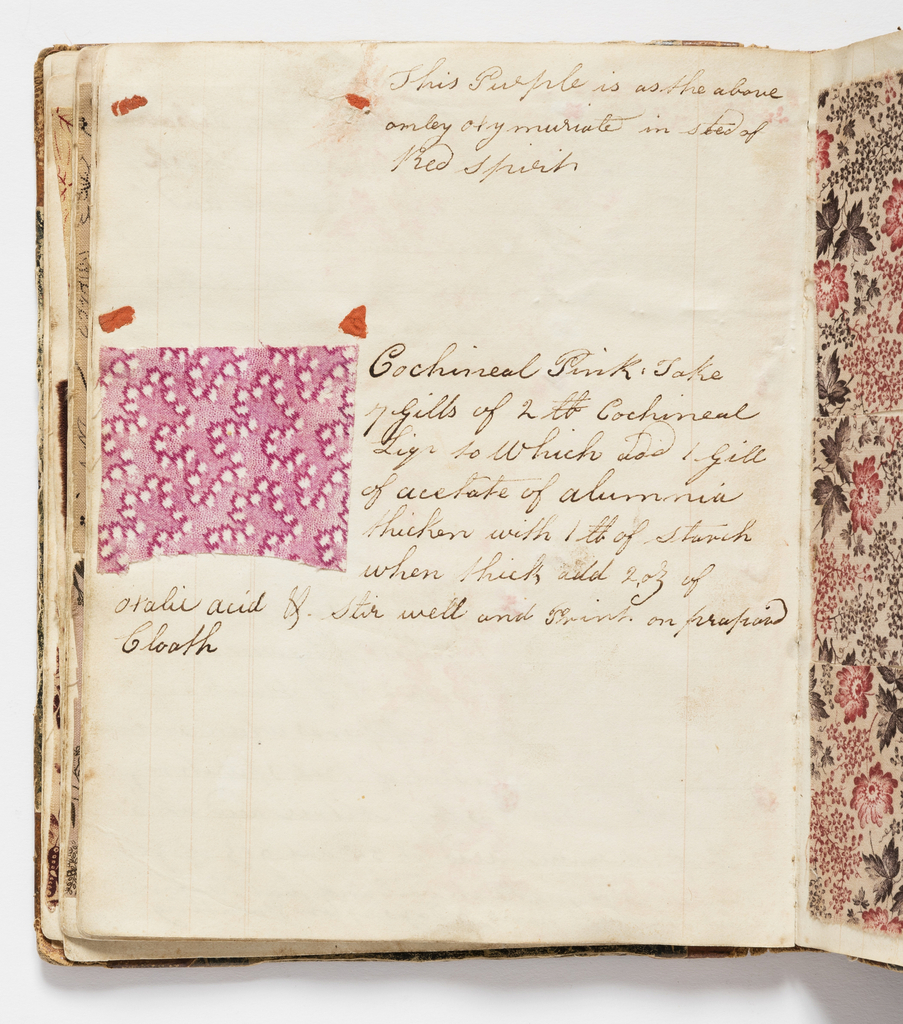 This Purple is as the above
onley oxymuriate in sted of
Red Spirit
Cochineal Pink: Take
7 Gills of 2 lb Cochineal
Liqr to Which add 1 Gill
of acetate of alumnia
thicken with 1 lb of Starch
when thick add 2 oz of
oxalic acid &. Stir well and Print. on prepaird
Cloath